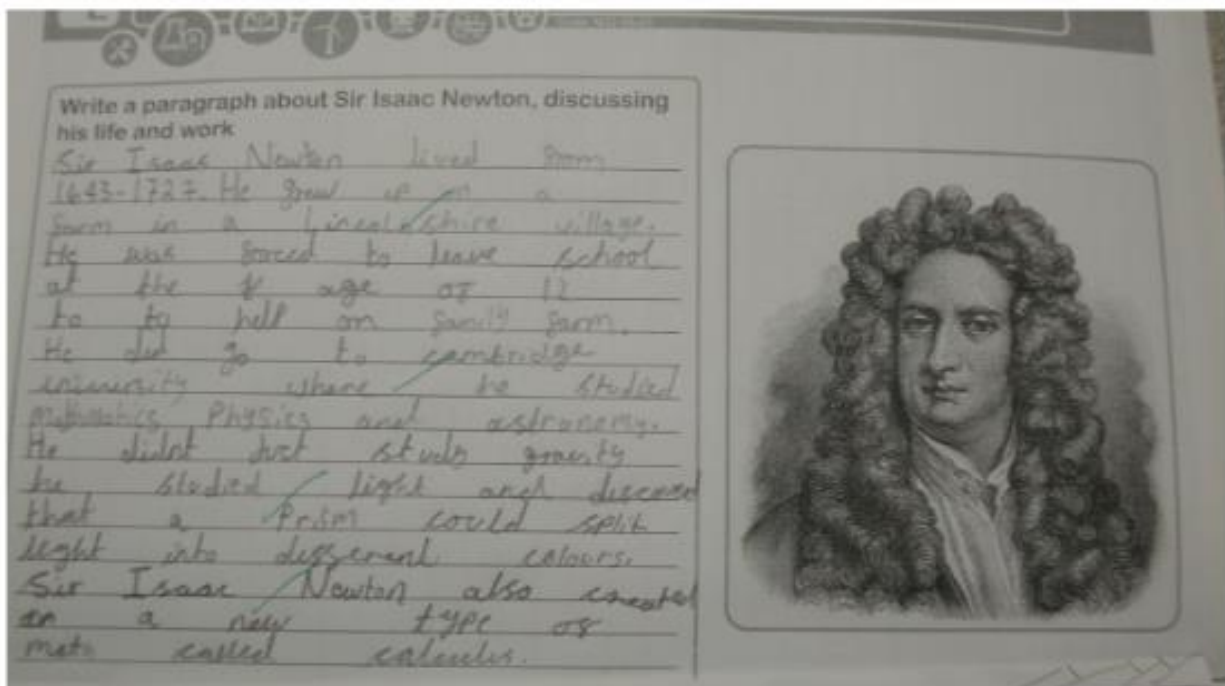 Write a paragraph about Sir Isaac Newton, discussing
his life and work
Sir Isaac Newton lived from
1643-1727. He grew up on a
farm in a Lincolnshire village.
He was forced to leave school
at the age of 12
to to help on family farm.
He did go to cambridge
university where he studied
Physics and astronomy.
He didnt just study gravity
he studied light and
that a Prism could split
light into colours.
Sir Isaac Newton also created
a new type of
called calculus.